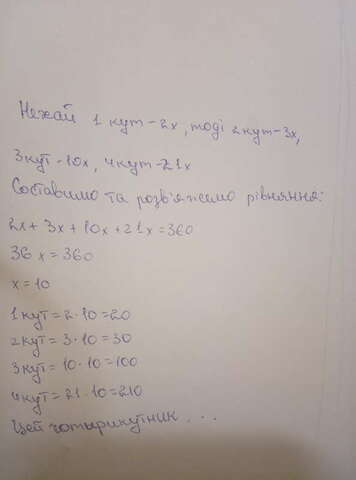 Нехай 1 кут - 2х, тоді 2 кут - 3х,
3 кут - 10х, 4 кут - 21х
Составимо та розв'яжемо рівняння:
2х + 3х + 10х + 21х = 360
36 х = 360
х = 10
1 кут = 2 · 10 = 20
2 кут = 3 · 10 = 30
3 кут = 10 · 10 = 100
4 кут = 21 · 10 = 210
Цей чотирикутник . . .